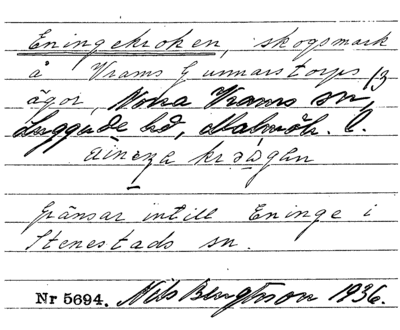 Eningekroken, skogsmark
å Vrams Gunnarstorps 13
ägor, Norra Vrams sn,
Luggude hd, Malmöh. l.
gränsar intill Eninge i
Stenestads sn.
Nr 5694. Nils Bengtsson 1936.